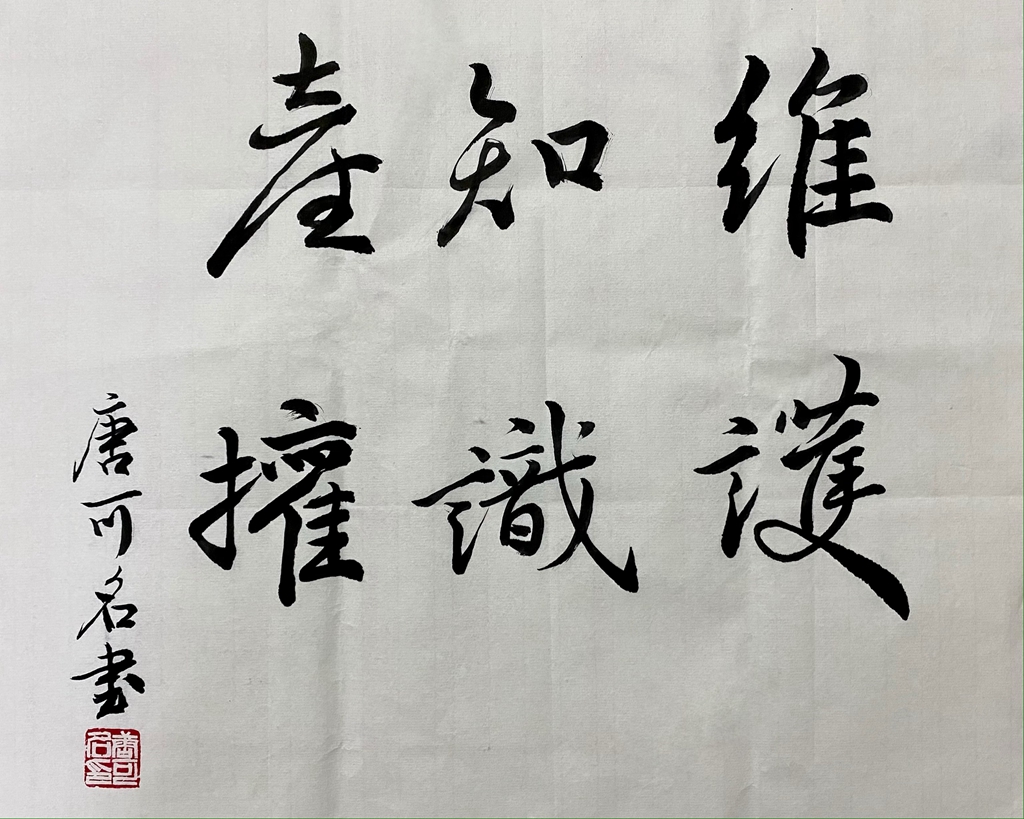 維護
知識
產權
唐可名書
唐可名印